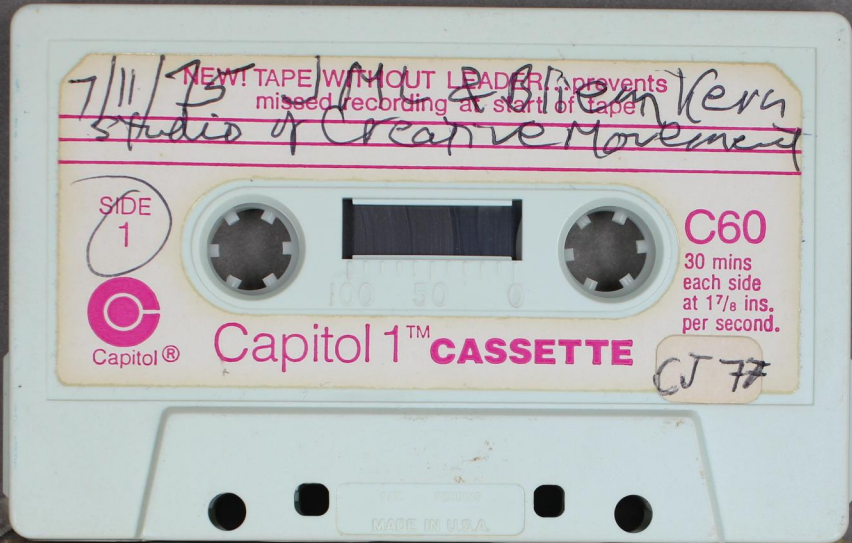 NEW! TAPE WITHOUT LEADER... prevents
missed recording at start of tape
7/11/75 JML & Bliem Kern
Studio of Creative Movement
SIDE
1
C60
30 mins
each side
at 1 7/8 ins.
per second.
100 50 0
Capitol®
Capitol 1™ CASSETTE
CJ 77
MADE IN U.S.A.